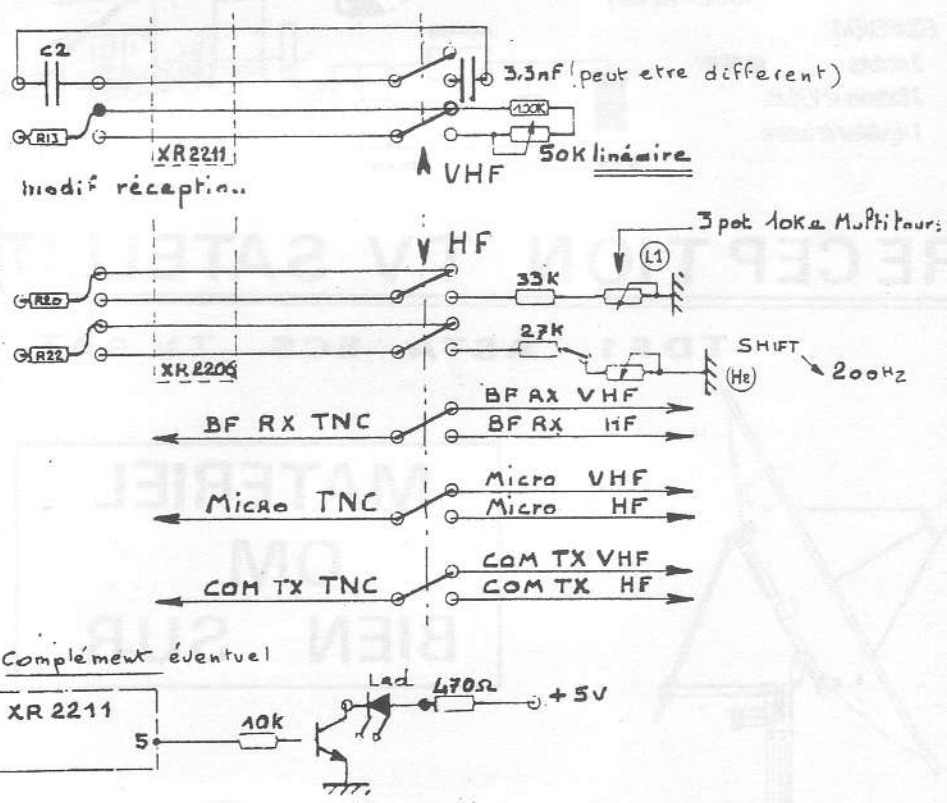 C2
3,3nF (peut etre different)
100K
R13
XR2211
50K linéaire
VHF
modif réception
HF
3 pot 10K Multitours
L1
R20
33K
R22
27K
XR2206
SHIFT
200Hz
BF RX TNC
BF RX VHF
BF RX HF
Micro TNC
Micro VHF
Micro HF
COM TX TNC
COM TX VHF
COM TX HF
Complément éventuel
XR 2211
5
10K
Led
470Ω
+5V
EQUIPEMENT
RECEPTION TV SATELLIT
MATERIEL
OM
BIEN SUR